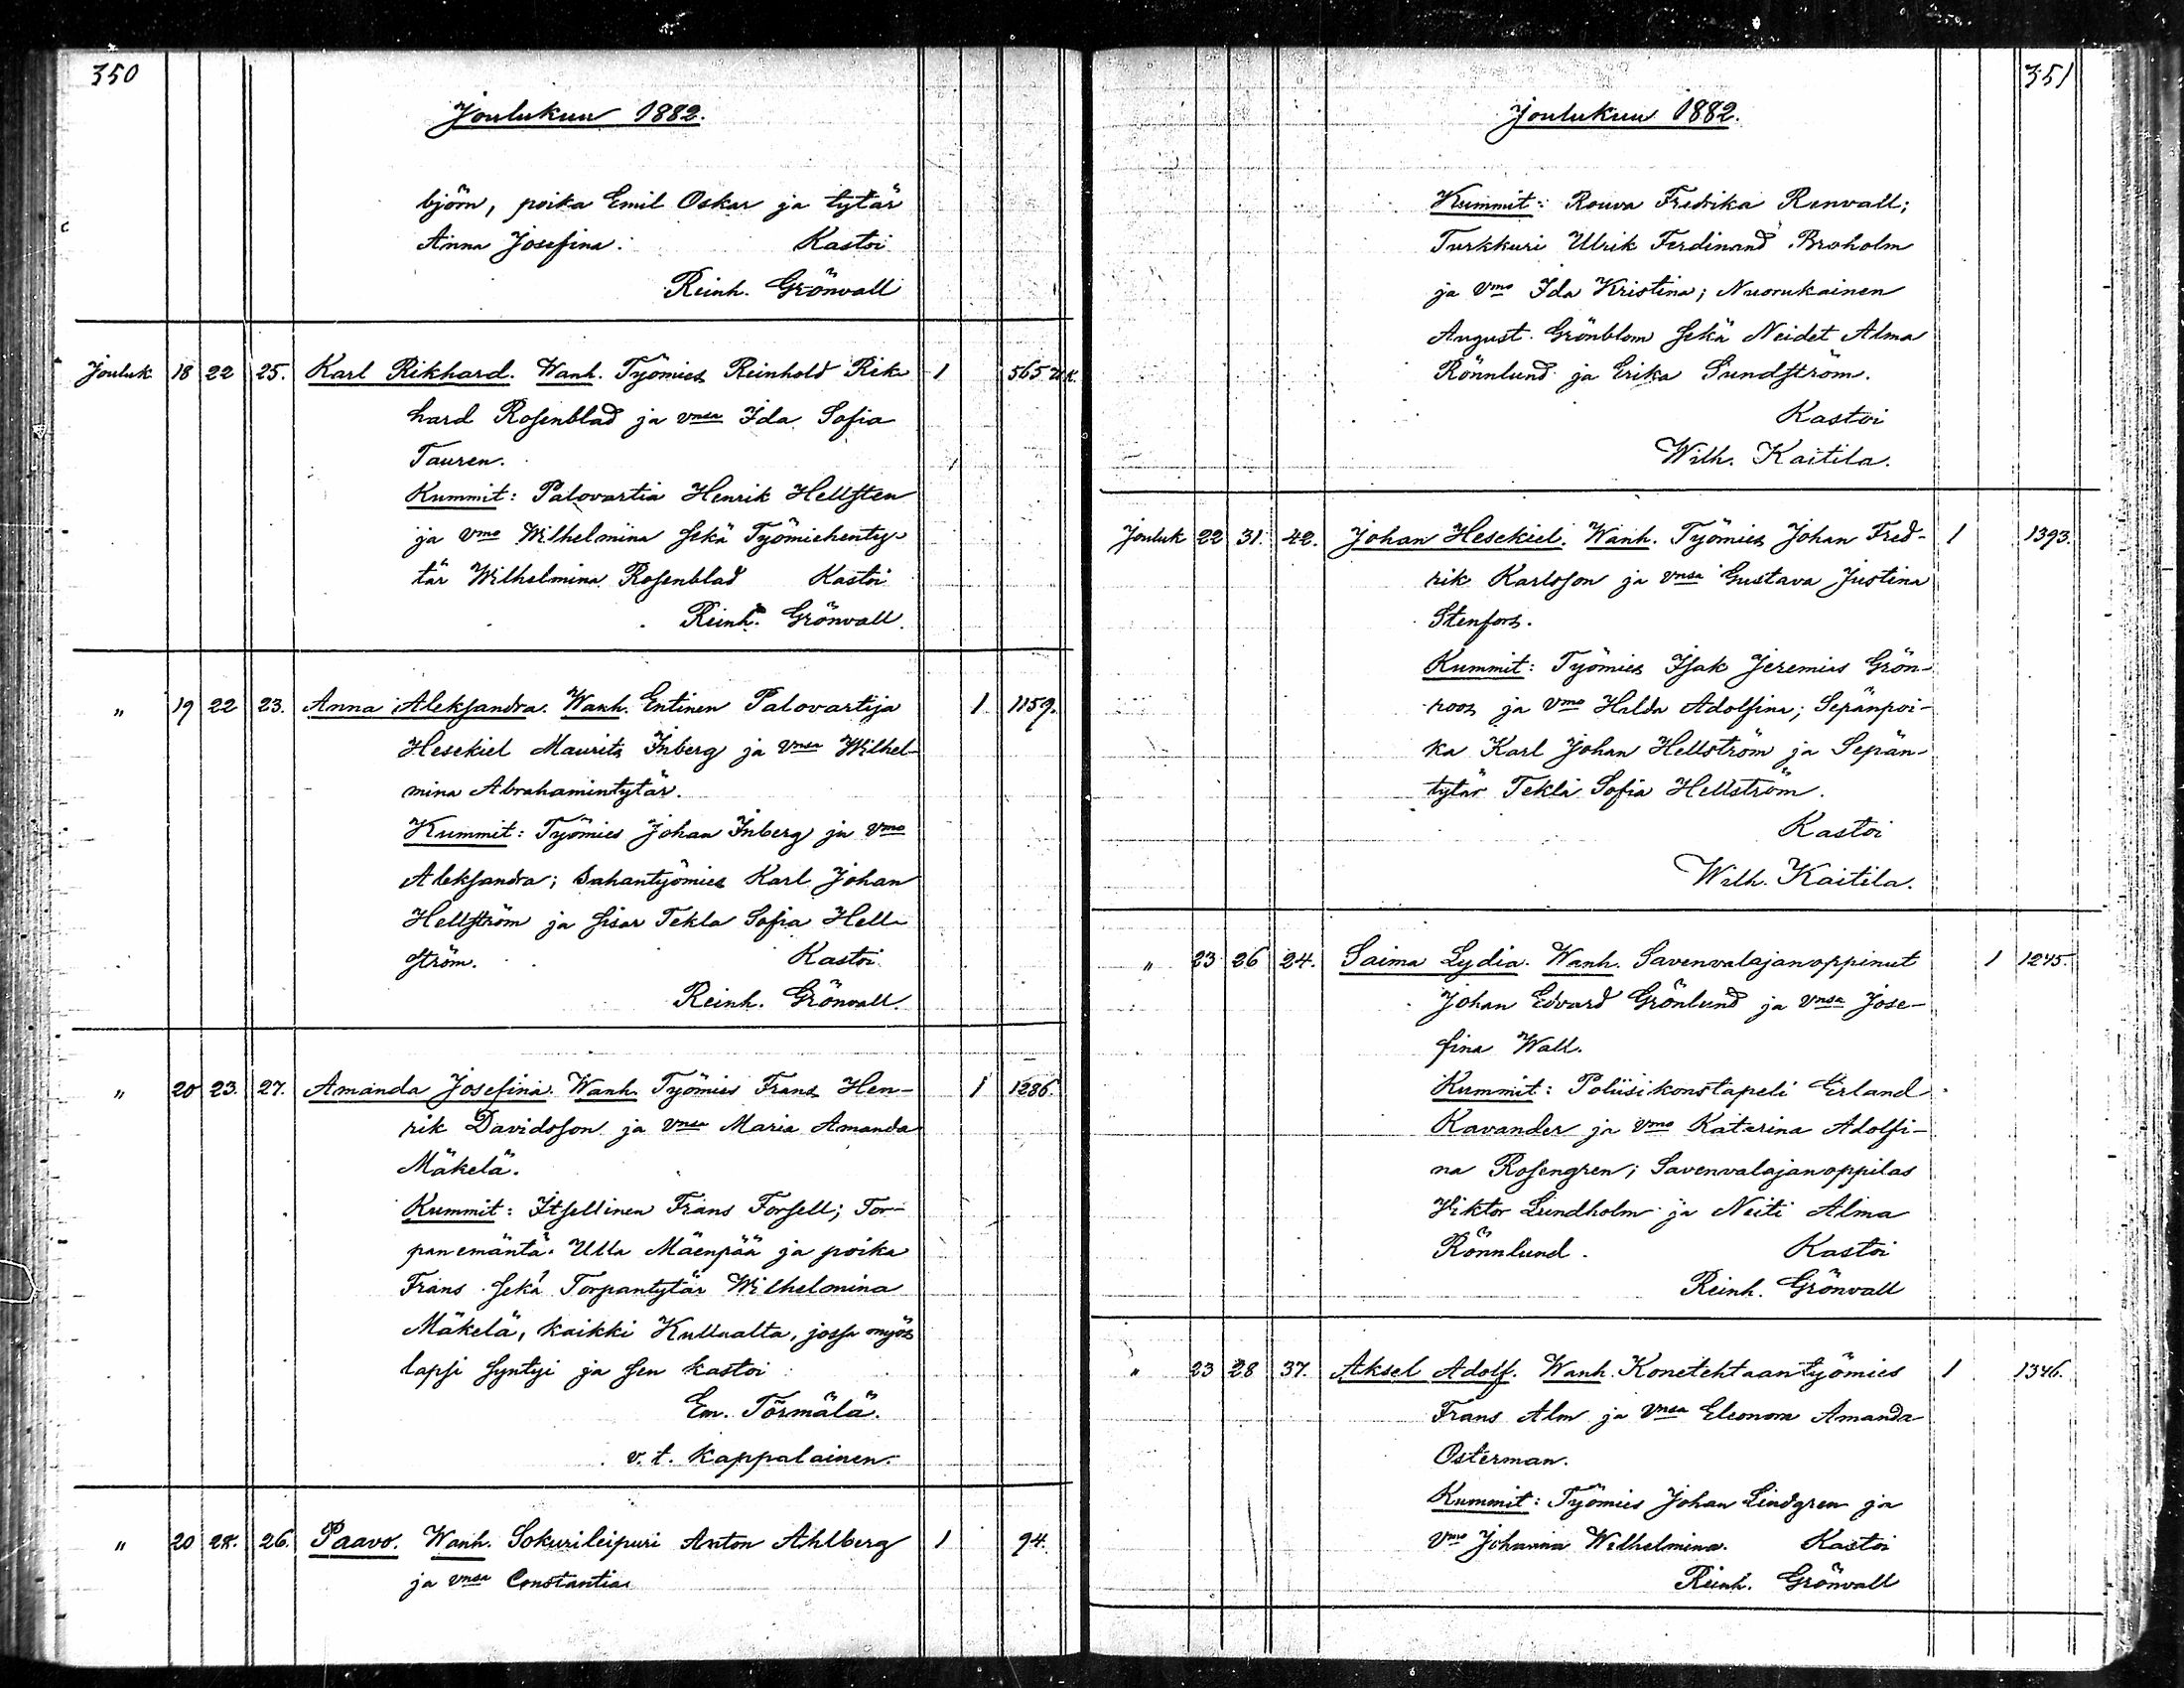 350
Joulukuu 1882.
björn, poika Emil Oskar ja tytär
Anna Josefina. Kastoi
Reinh. Grönvall
Jouluk. 18 22 25. Karl Rikhard. Wanh. Työmies Reinhold Rik- 1 565
hard Rosenblad ja vnsa Ida Sofia
Tauren.
Kummit: Palovartia Henrik Hellsten
ja vmo Wilhelmina sekä Työmiehenty-
tär Wilhelmina Rosenblad Kastoi
Reinh. Grönvall.
" 19 22 23. Anna Aleksandra. Wanh. Entinen Palovartija 1 1159.
Hesekiel Maurits Inberg ja vnsa Wilhel-
mina Abrahamintytär.
Kummit: Työmies Johan Inberg ja vmo
Aleksandra; Sahantyömies Karl Johan
Hellström ja sisar Tekla Sofia Hell-
ström. Kastoi
Reinh. Grönvall.
" 20 23. 27. Amanda Josefina. Wanh. Työmies Frans Hen- 1 1286.
rik Davidsson ja vnsa Maria Amanda
Mäkelä.
Kummit: Itsellinen Frans Forsell; Tor-
panemäntä Ulla Mäenpää ja poika
Frans sekä Torpantytär Wilhelmina
Mäkelä, kaikki Kullaalta, jossa myös
lapsi syntyi ja sen kastoi
Em. Törmälä.
v. t. Kappalainen.
" 20 28. 26. Paavo. Wanh. Sokurileipuri Anton Ahlberg 1 94.
ja vnsa Constantia
351
Joulukuu 1882.
Kummit: Rouva Fredrika Renvall;
Turkkuri Ulrik Ferdinand Broholm
ja vmo Ida Kristina; Nuorukainen
August Grönblom sekä Neidet Alma
Rönnlund ja Erika Sundström.
Kastoi
Wilh. Kaitila.
Jouluk 22 31. 42. Johan Hesekiel. Wanh. Työmies Johan Fred- 1 1393.
rik Karlsson ja vnsa Gustava Justina
Stenfors.
Kummit: Työmies Isak Jeremias Grön-
roos ja vmo Hilda Adolfina; Sepänpoi-
ka Karl Johan Hellström ja Sepän-
tytär Tekla Sofia Hellström.
Kastoi
Wilh. Kaitila.
" 23 26 24. Saima Lydia. Wanh. Savenvalajanoppinut 1 1245.
Johan Edvard Grönlund ja vnsa Jose-
fina Wall.
Kummit: Poliisikonstapeli Erland
Kavander ja vmo Katarina Adolfi-
na Rosengren; Savenvalajanoppilas
Viktor Lundholm ja Neiti Alma
Rönnlund. Kastoi
Reinh. Grönvall
" 23 28 37. Aksel Adolf. Wanh. Konetehtaantyömies 1 1346.
Frans Alm ja vnsa Eleonora Amanda
Österman.
Kummit: Työmies Johan Lindgren ja
Vmo Johanna Wilhelmina. Kastoi
Reinh. Grönvall